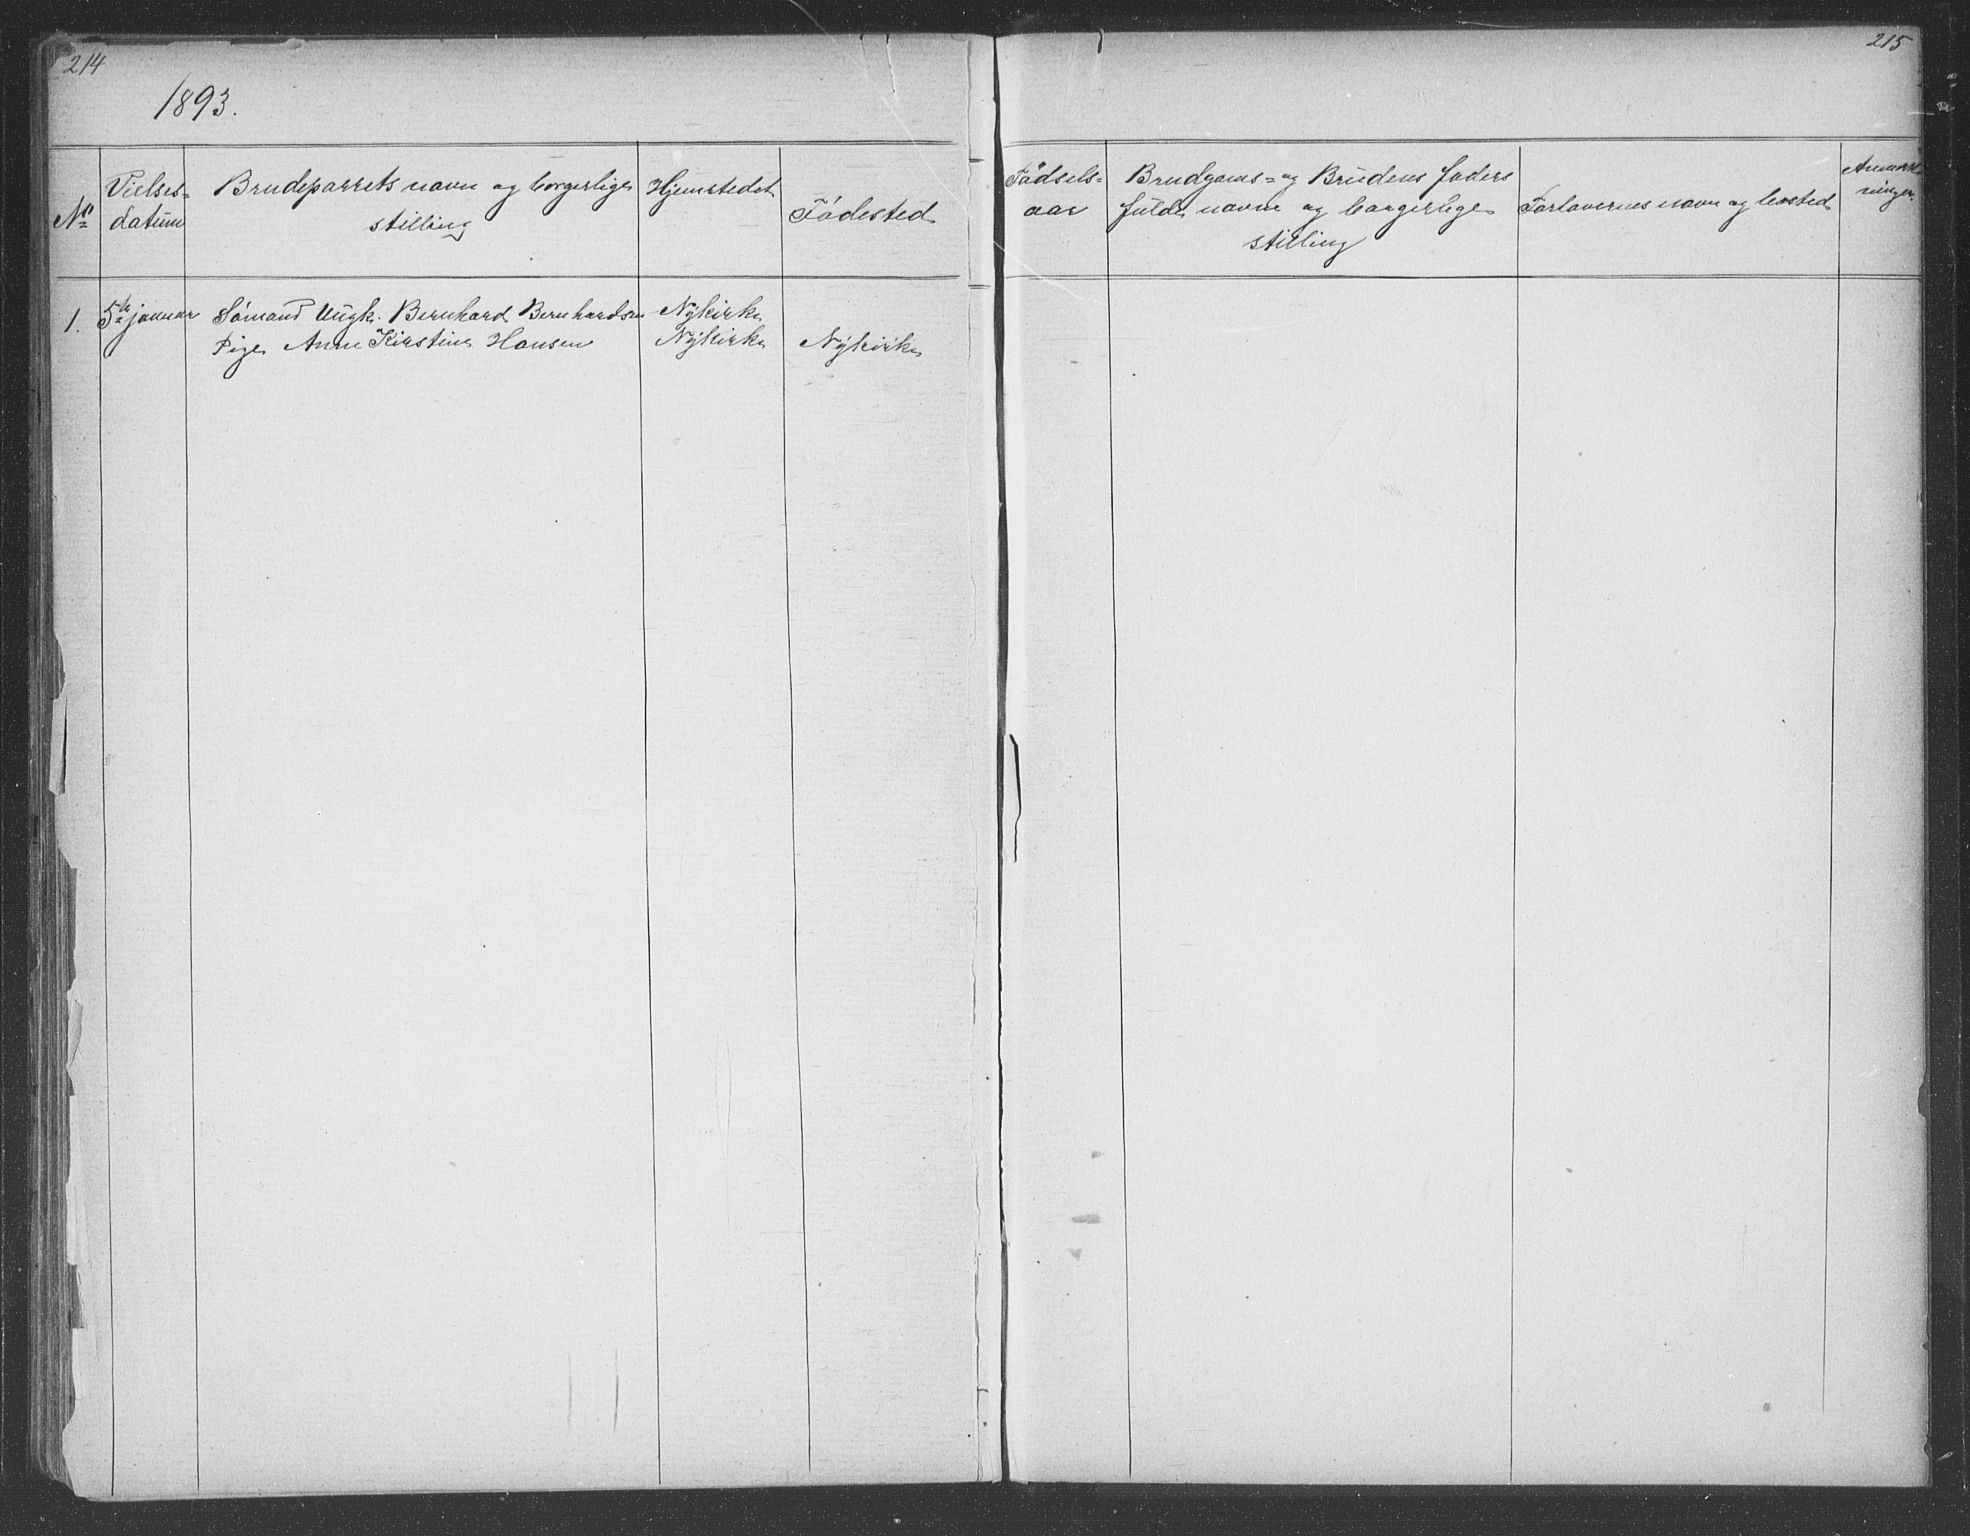 214
1893.
No
Vielses-
datum
Brudeparrets navn og borgerlige
stilling
Hjemstedet
Fødested
1.
5te januar
Sømand Ungk. Bernhard Bernhardsen
Nÿkirke
Pige Anne Kirstine Hansen
Nÿkirke
Nÿkirke
215
Fødsels-
aar
Brudgoms- og Brudens faders
fulde navne og borgerlige
stilling
Forlovernes navn og bosted
Anmærk-
ninger.